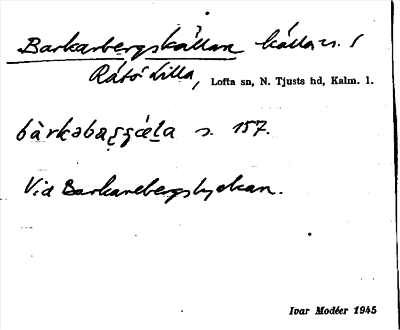 Barkarbergskällan källa n. S
Råtö Lilla, Lofta sn, N. Tjusts hd, Kalm. l.
s. 157.
Vid Barkarebergslyckan.
Ivar Modéer 1945